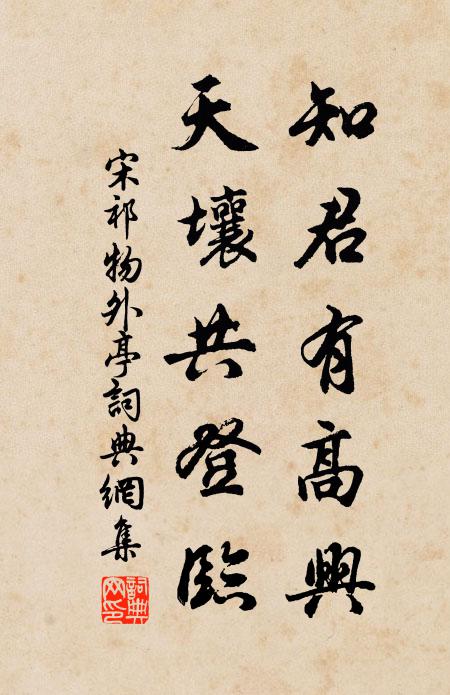 知君有高興
天壤共登臨
宋祁物外亭詞典網集
詞典網印